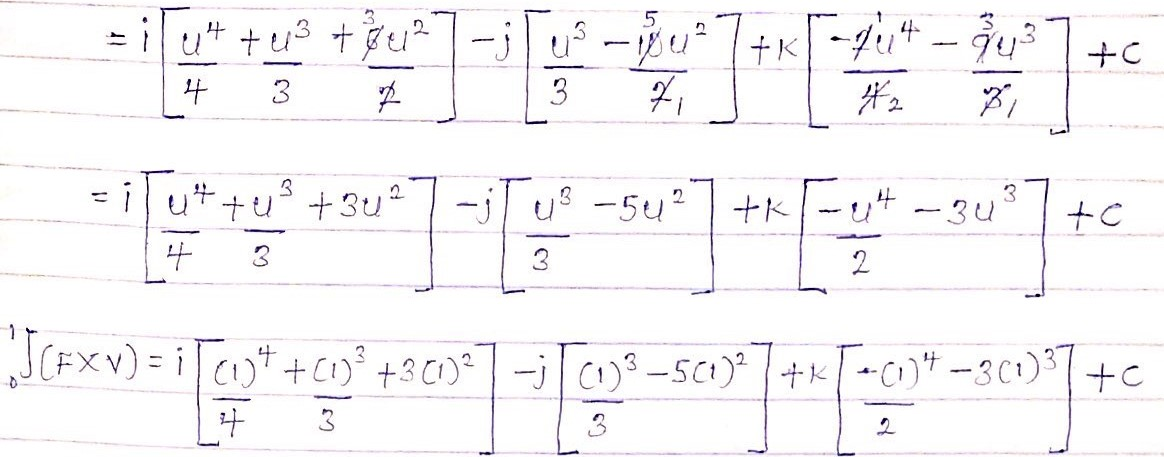 = i [u⁴/4 + u³/3 + 6̸³u²/2̸] - j [u³/3 - 1̸0̸⁵u²/2̸₁] + k [-2̸¹u⁴/4̸₂ - 9̸³u³/3̸₁] + c
= i [u⁴/4 + u³/3 + 3u²] - j [u³/3 - 5u²] + k [-u⁴/2 - 3u³] + c
¹₀∫(F×V) = i [(1)⁴/4 + (1)³/3 + 3(1)²] - j [(1)³/3 - 5(1)²] + k [-(1)⁴/2 - 3(1)³] + c